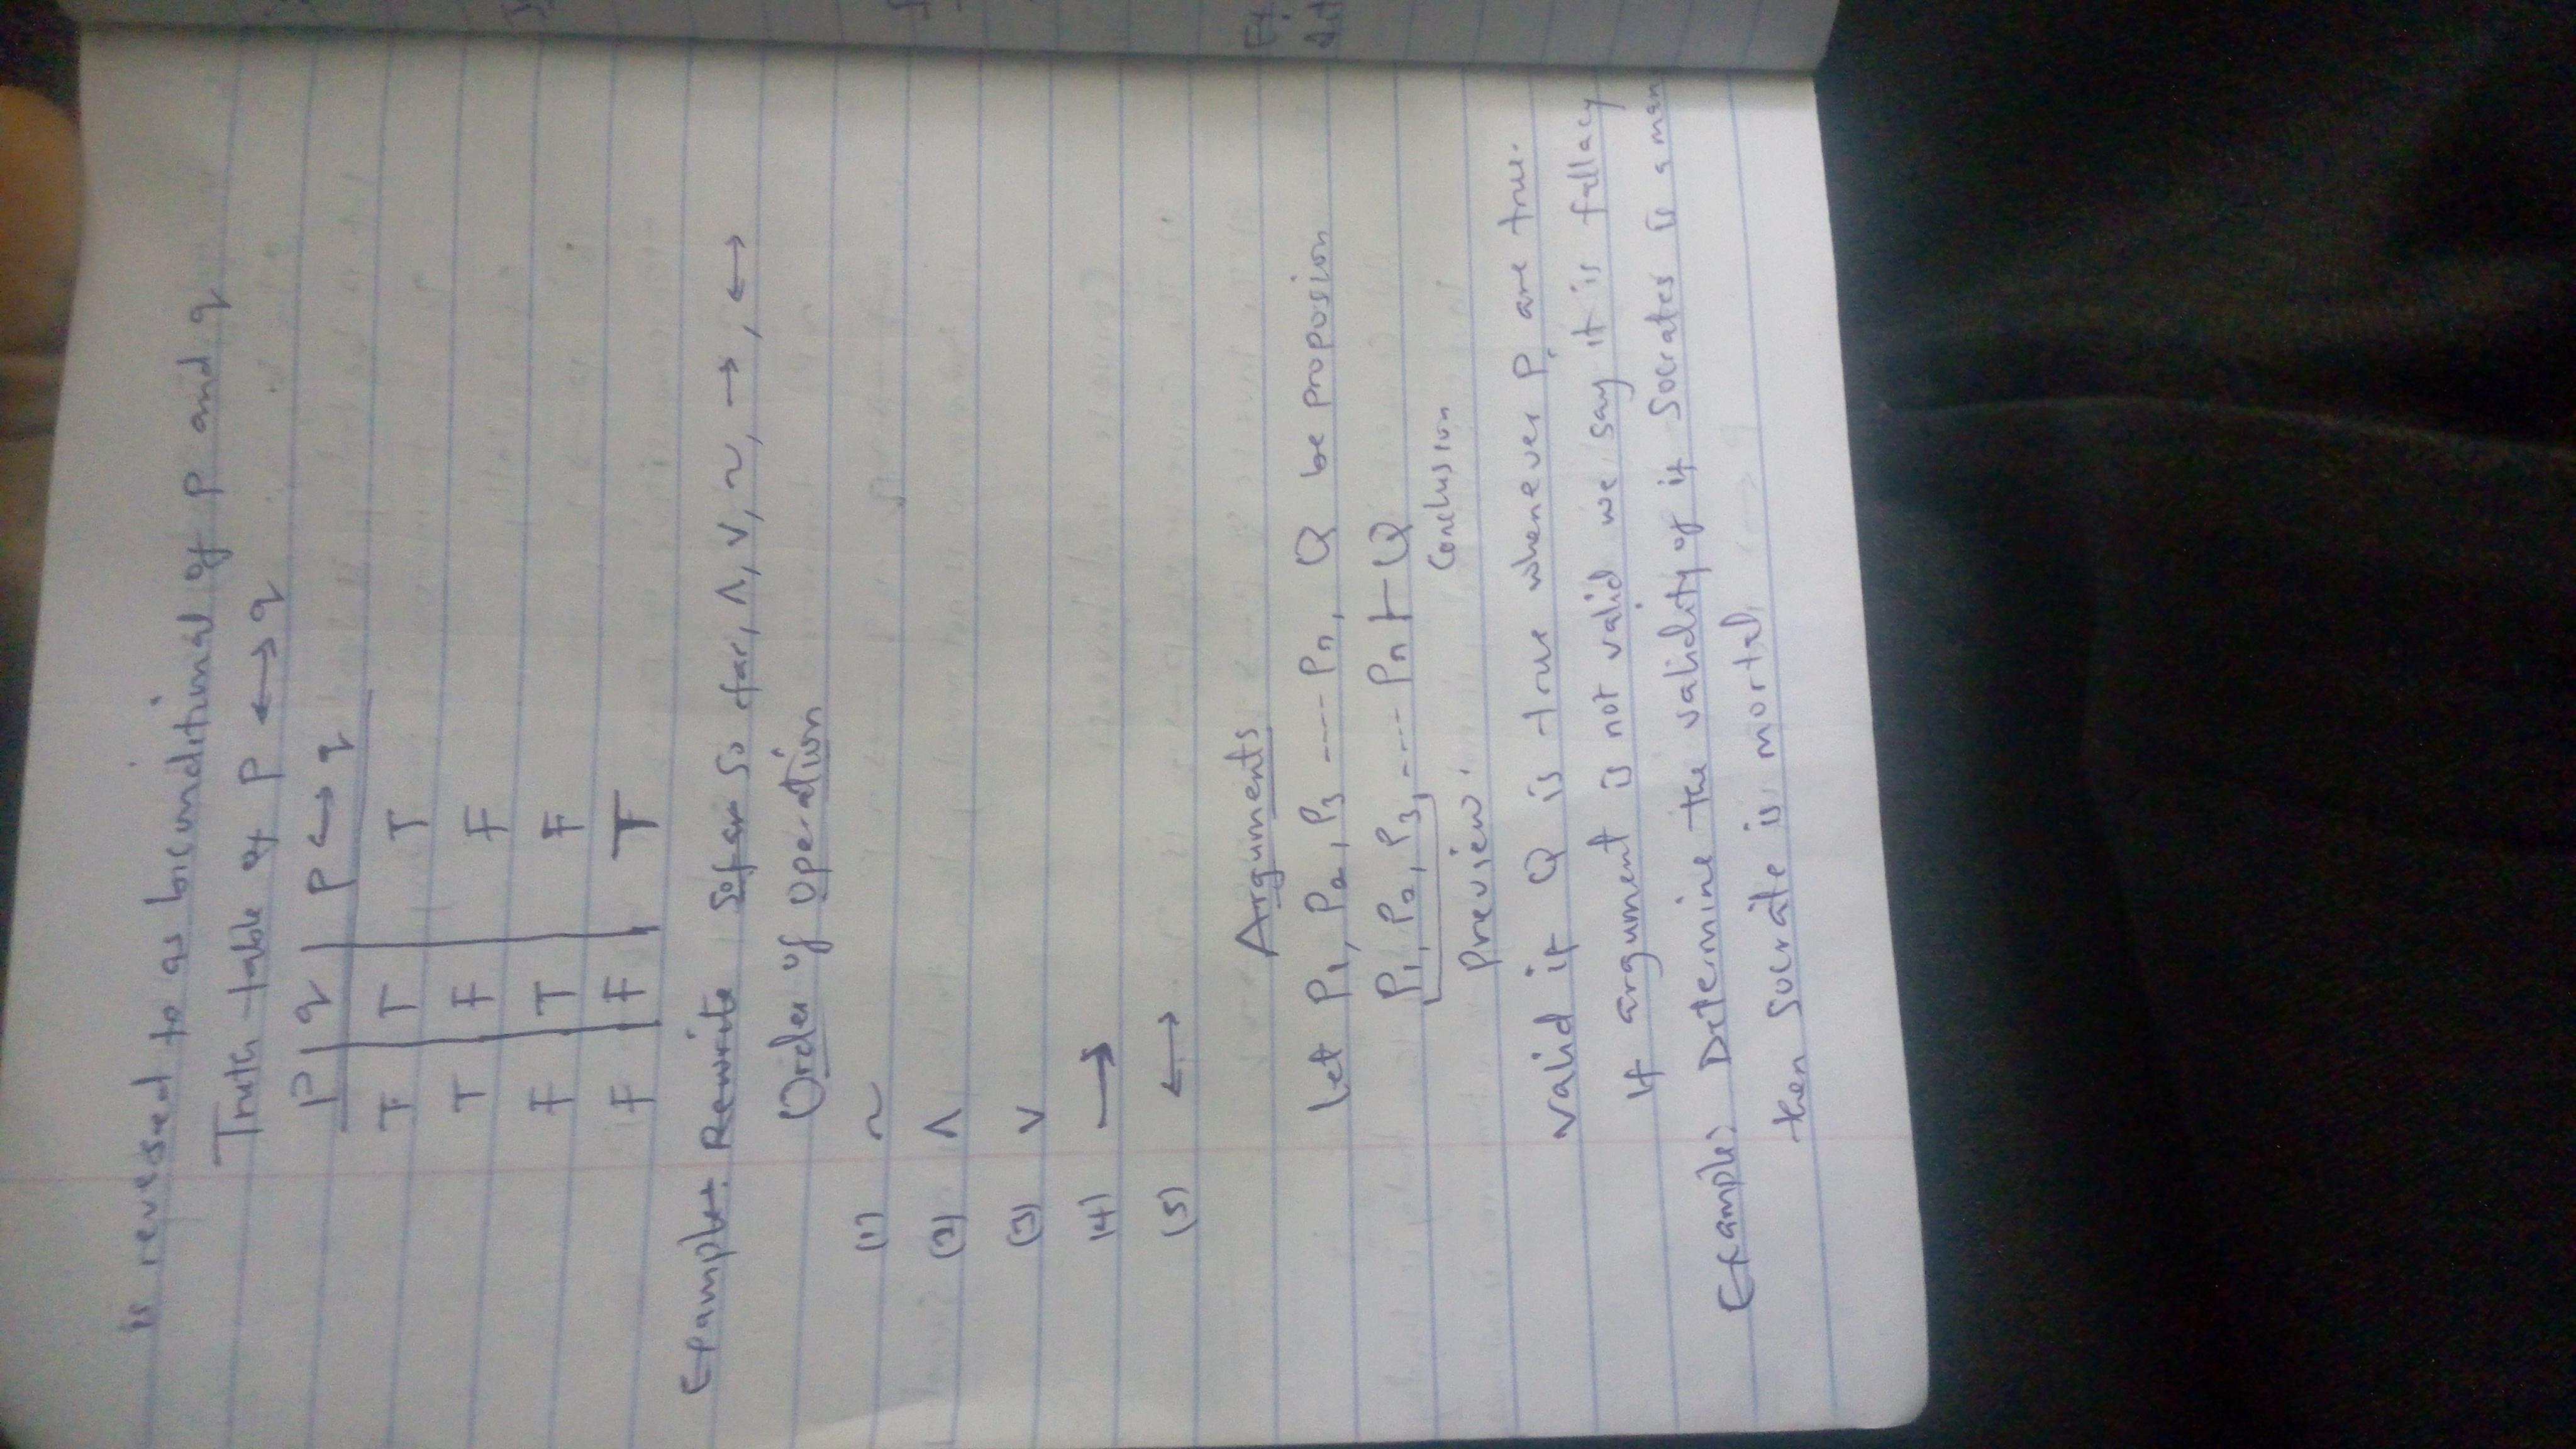 is reversed to as biconditional of P and q
Truth table of P ↔ q
P q P ↔ q
T T T
T F F
F T F
F F T
Example: Rewrite Sofar so far, ∧, ∨, ~, →, ↔
Order of Operation
(1) ~
(2) ∧
(3) ∨
(4) →
(5) ↔
Arguments
Let P1, P2, P3 ---- Pn, Q be proposion
P1, P2, P3, ---- Pn ⊢ Q
Preview. Conclusion
valid if Q is true whenever P, are true.
If argument is not valid we say it is fallacy
Example: Determine the validity of if Socrates is a man
then Socrate is mortal.